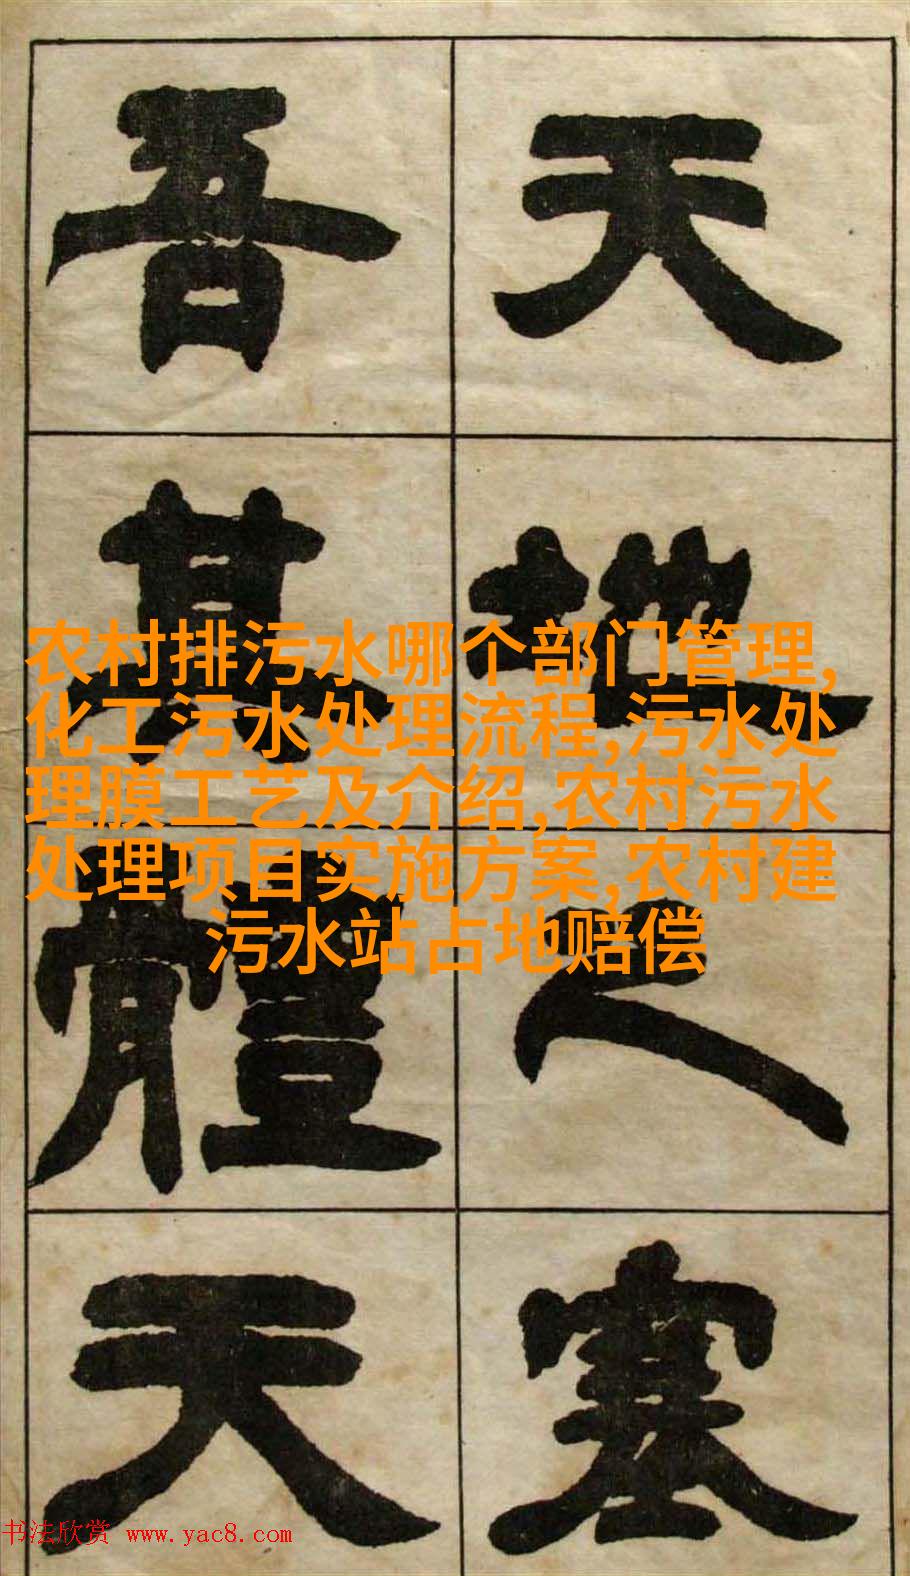 天地之塞
吾其體天
农村排污水哪个部门管理,
化工污水处理流程,污水处
理膜工艺及介绍,农村污水
处理项目实施方案,农村建
污水站占地赔偿
书法欣赏 www.yac8.com